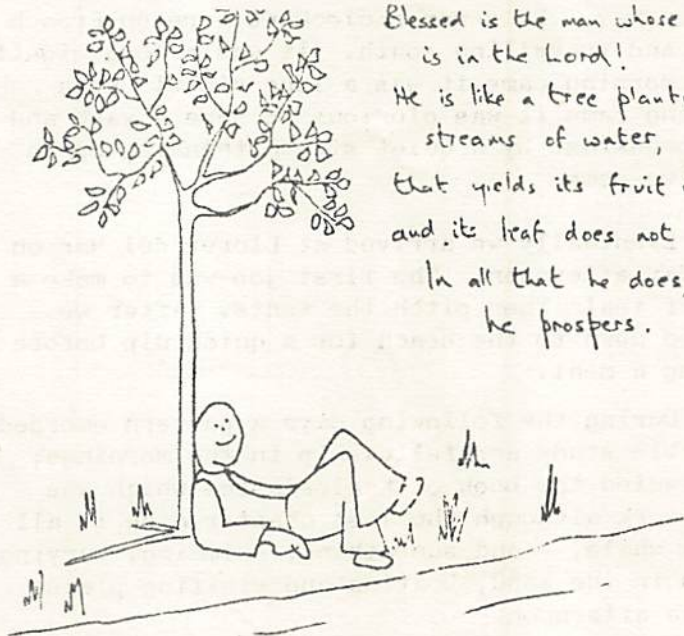 Blessed is the man whose
is in the Lord:
He is like a tree
streams of water,
that yields its fruit
and its leaf does not
In all that he does
he prospers.